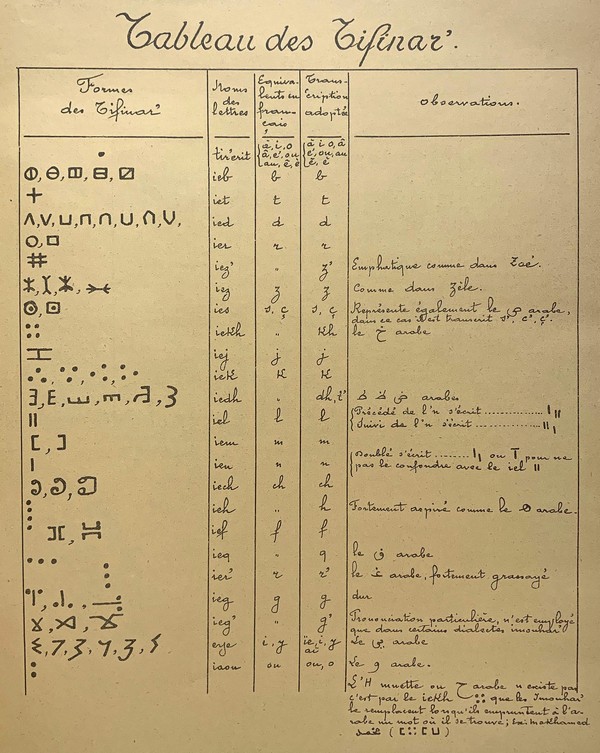 Tableau des Tifinar'.
Formes des Tifinar' | Noms des lettres | Equivalents en français | Transcription adoptée | Observations.
· | tir'erit | à, i, o, â, é, ou, au, ê, è | à i o, â é, ou, au ê, è
ⵀ, ⴱ | ieb | b | b
+ | iet | t | t
Λ, V, ⊔, ⊓, ∩, U, ∩, V, | ied | d | d
O, □ | ier | r | r
⌗ | iez' | " | z' | Emphatique comme dans Zoé.
ⵣ | iez | z | z | Comme dans Zèle.
ⵙ, ⊡ | ies | s, ç | s, ç | Représente également le ص arabe,
dans ce cas il est transcrit s', c', ç'.
⸬ | iekh | " | kh | le خ arabe
ⵊ | iej | j | j
iek | k | k
Ǝ, E, Ш, m, 3 | iedh | " | dh, t' | ط ض ظ arabes
|| | iel | l | l | Précédé de l'n s'écrit ........ ı||
Suivi de l'n s'écrit ........ ||ı
[, ] | iem | m | m
| | ien | n | n | Doublé s'écrit ........ |ı ou T pour ne
pas le confondre avec le iel ||
iech | ch | ch
⁞ | ieh | " | h | Fortement aspiré comme le ه arabe.
ⵊⵎ, H | ief | f | f
··· | ieq | " | q | le ق arabe
⁝ | ier' | r | r' | le غ arabe, fortement grasseyé
ieg | g | g | dur
ieg' | " | g' | Prononciation particulière, n'est employé
que dans certains dialectes imouhar'
ⵢ, 7, 3, 4, 3, ⵢ | eye | i, y | ïe, i, y aï | Le ي arabe
: | iaou | ou | ou, o | Le و arabe.
L'H muette ou ح arabe n'existe pas
c'est par le iekh ⸬ que les Imouhar'
le remplacent lorsqu'ils empruntent à l'a-
rabe un mot où il se trouve; Ex: mokhamed
محمد ([⸬[⊔)